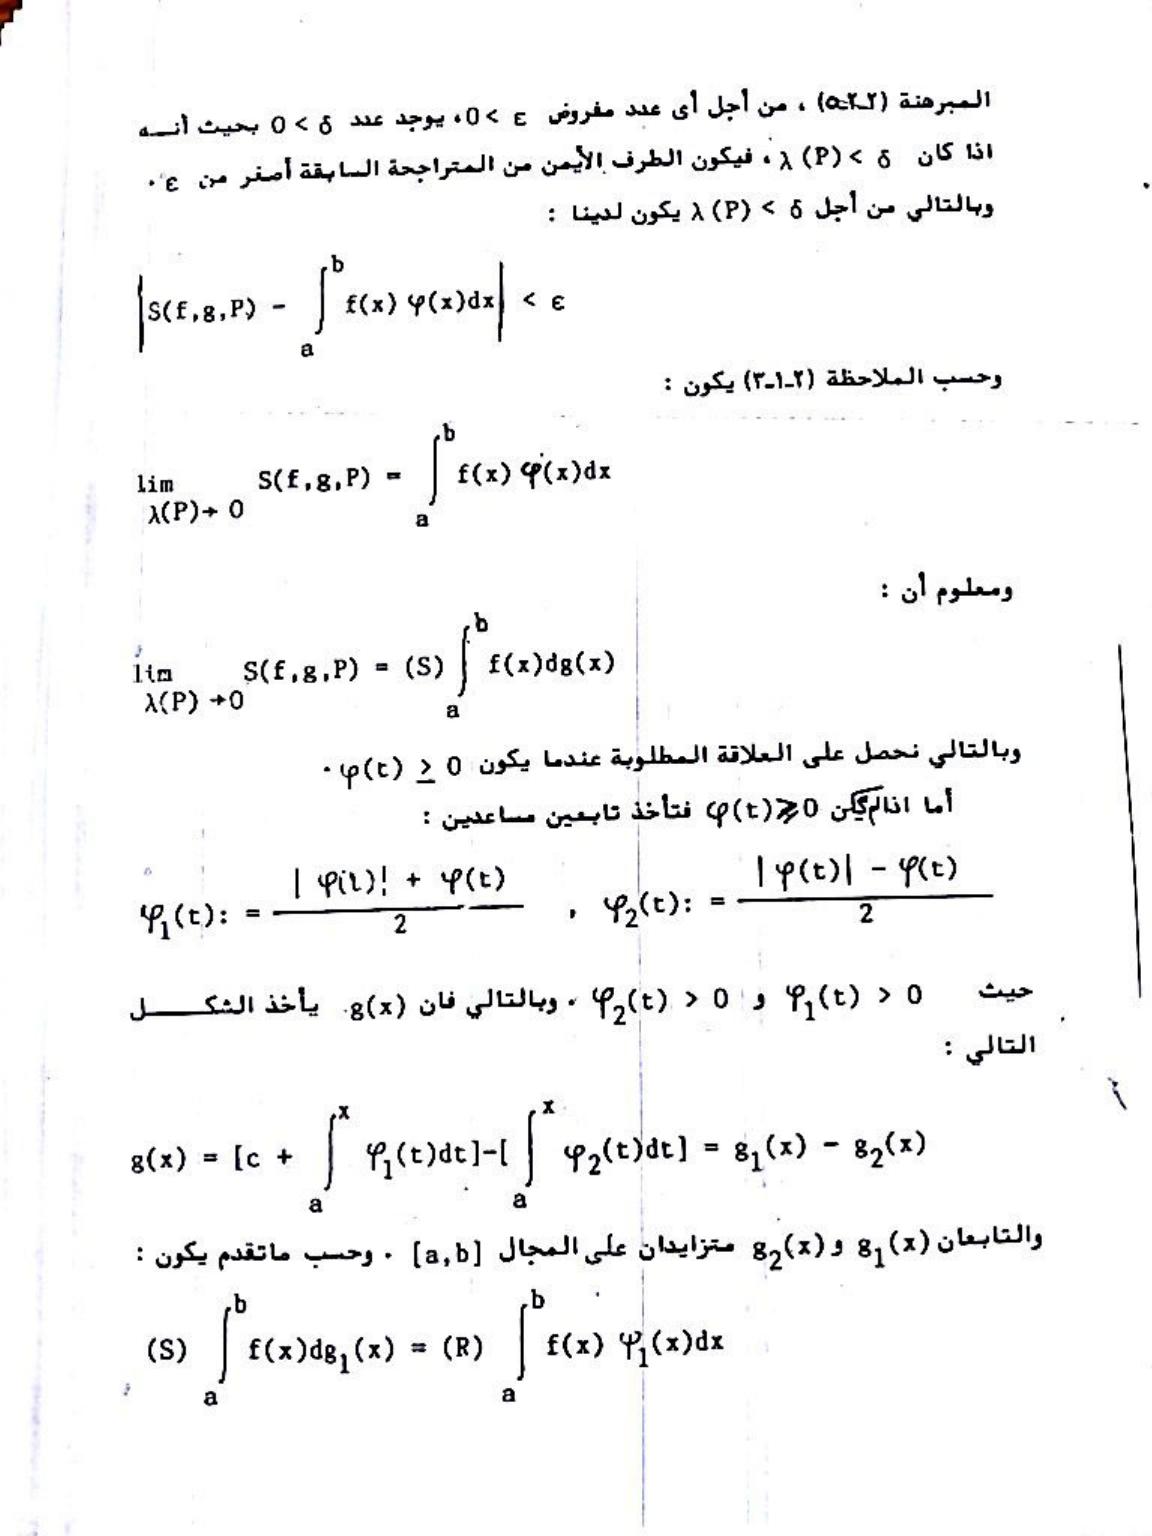 المبرهنة (٢ـ٢ـ٥) ، من أجل أى عدد مفروض ε > 0، يوجد عدد δ > 0 بحيث أنـــه
اذا كان λ (P) < δ ، فيكون الطرف الأيمن من المتراجحة السابقة أصغر من ε .
وبالتالي من أجل λ (P) < δ يكون لدينا :
|S(f,g,P) - ∫_a^b f(x) φ(x)dx| < ε
وحسب الملاحظة (٢ـ١ـ٣) يكون :
lim_{λ(P)→ 0} S(f,g,P) = ∫_a^b f(x) φ(x)dx
ومعلوم أن :
lim_{λ(P) →0} S(f,g,P) = (S) ∫_a^b f(x)dg(x)
وبالتالي نحصل على العلاقة المطلوبة عندما يكون φ(t) ≥ 0 .
أما اذا لم يكن φ(t)⩾0 فتأخذ تابعين مساعدين :
φ₁(t): = (| φ(t)| + φ(t))/2 , φ₂(t): = (|φ(t)| - φ(t))/2
حيث φ₁(t) > 0 و φ₂(t) > 0 . وبالتالي فان g(x) يأخذ الشكـــــل
التالي :
g(x) = [c + ∫_a^x φ₁(t)dt]-[ ∫_a^x φ₂(t)dt] = g₁(x) - g₂(x)
والتابعان g₁(x) و g₂(x) متزايدان على المجال [a,b] . وحسب ماتقدم يكون :
(S) ∫_a^b f(x)dg₁(x) = (R) ∫_a^b f(x) φ₁(x)dx